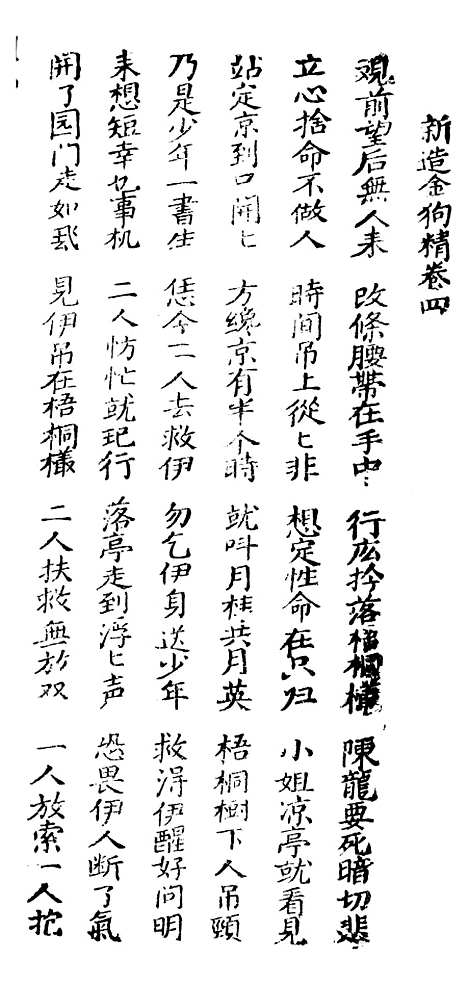 新造金狗精卷四
觇前望后無人来 改條腰帶在手中 行広拎落梧桐橫 陳龍要死暗切悲
立心捨命不做人 時间吊上從〻非 想定性命在只归 小姐凉亭就看見
站定京到口開〻 方纔京有半个時 就呌月桂共月英 梧桐樹下人吊頸
乃是少年一書生 恁今二人去救伊 勿乞伊身送少年 救淂伊醒好问明
来想短幸乜事机 二人忙就𫝆行 落亭走到浮〻声 恐畏伊人断了氣
開了园门走如飛 見伊吊在梧桐樣 二人扶救無放双 一人放索一人抱